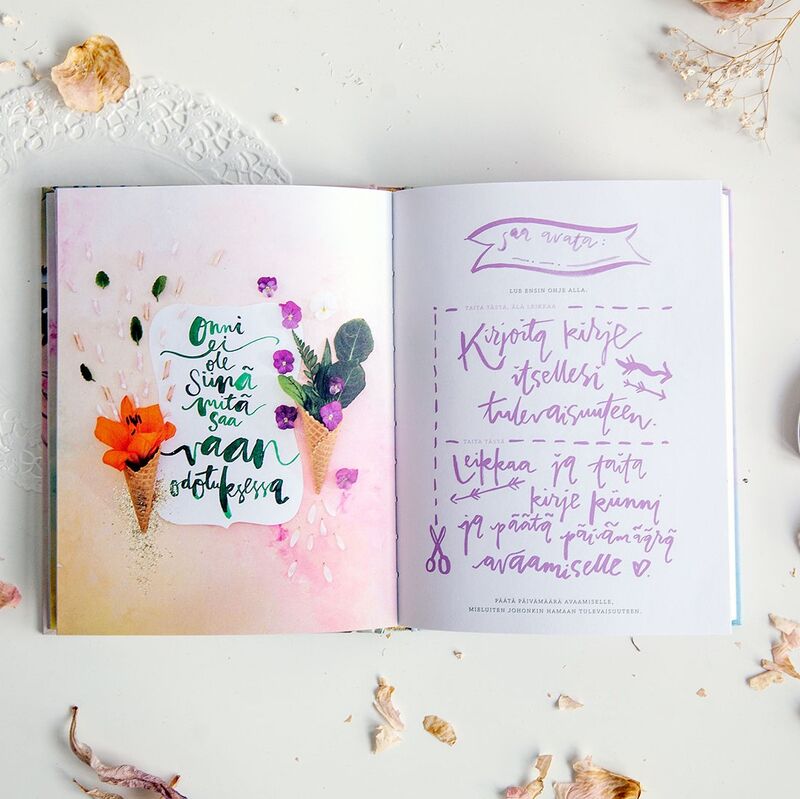 Onni
ei
ole
siinä
mitä
saa
vaan
odotuksessa
saa avata:
LUE ENSIN OHJE ALLA.
TAITA TÄSTÄ, ÄLÄ LEIKKAA
Kirjoita kirje
itsellesi
tulevaisuuteen.
TAITA TÄSTÄ
Leikkaa ja taita
kirje kiinni
ja päätä päivämäärä
avaamiselle
PÄÄTÄ PÄIVÄMÄÄRÄ AVAAMISELLE,
MIELUITEN JOHONKIN HAMAAN TULEVAISUUTEEN.